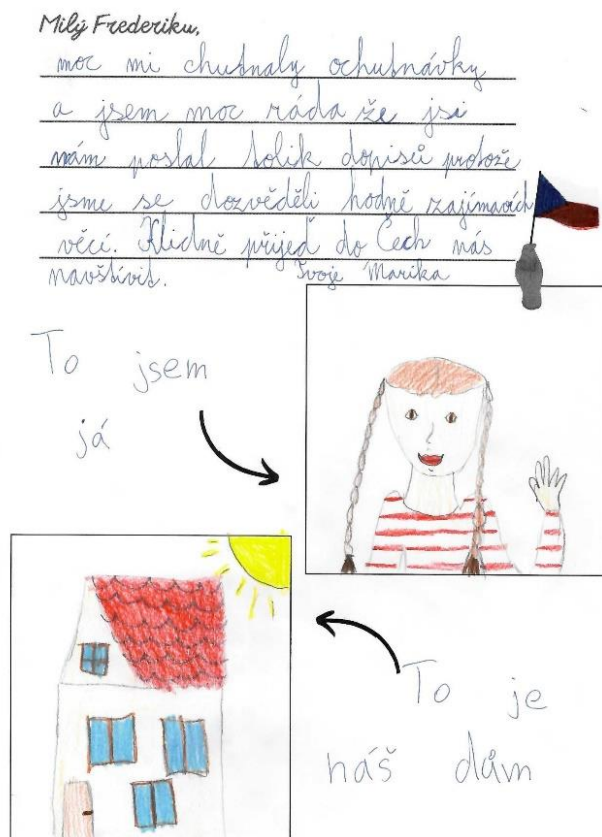 Milý Frederiku,
moc mi chutnaly ochutnávky
a jsem moc ráda že jsi
nám poslal tolik dopisů protože
jsme se dozvěděli hodně zajímavých
věcí. Klidně přijeď do Čech nás
navštívit. Tvoje Marika
To jsem
já
To je
náš dům